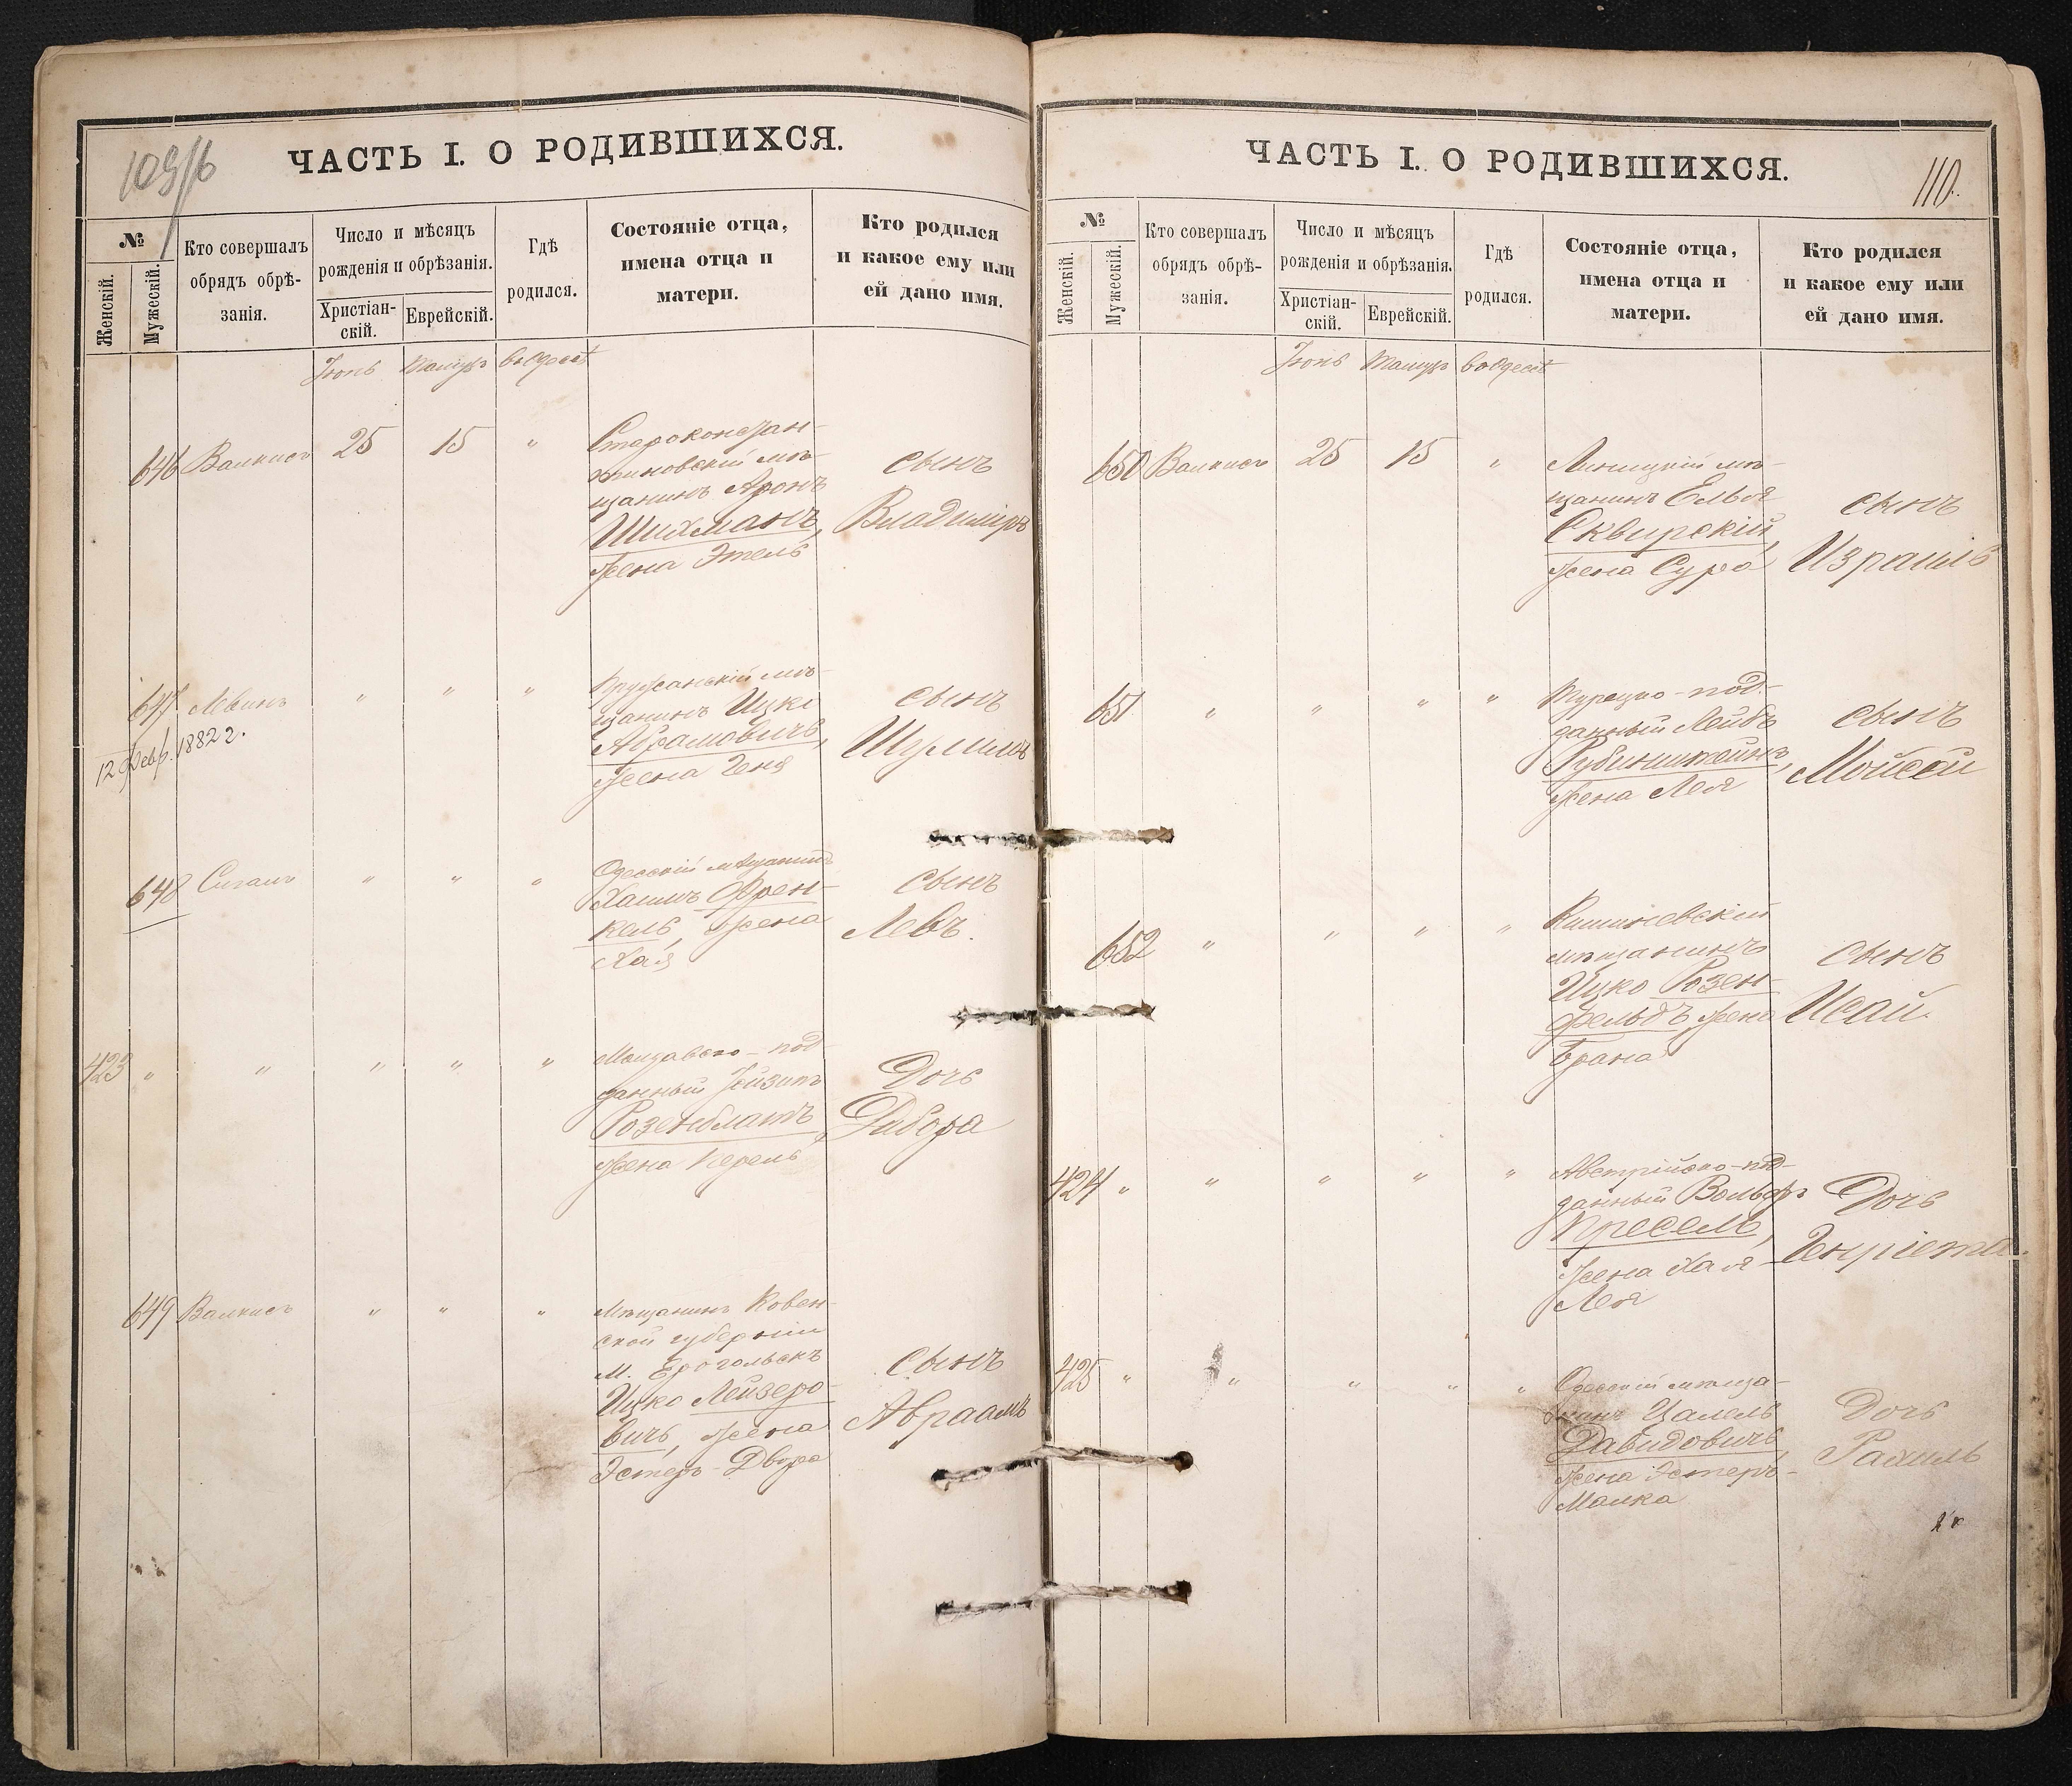 109/6
ЧАСТЬ I. О РОДИВШИХСЯ.
№
Женскій.
Мужескій.
Кто совершалъ
обрядъ обрѣ-
занія.
Число и мѣсяцъ
рожденія и обрѣзанія.
Христіан-
скій.
Еврейскій.
Гдѣ
родился.
Состояніе отца,
имена отца и
матери.
Кто родился
и какое ему или
ей дано имя.
Іюнь Тамузъ въ Одессѣ
646 Валкисъ 25 15 "
Староконстан-
тиновскій мѣ-
щанинъ Аронъ
Шихманъ,
жена Этель
сынъ
Владиміръ
647 Левинъ " " "
12 Февр. 1882 г.
Пружанскій мѣ-
щанинъ Ицко
Абрамовичъ,
жена Геня
сынъ
Шулимъ
648 Сигалъ " " "
Одесскій мѣщанинъ
Хаимъ Френ-
кель, жена
Хая
сынъ
Левъ.
423 " " " " "
Молдавско-под-
данный
Розенблатъ,
жена Перель
Дочь
Дебора
649 Валкисъ " " "
Мѣщанинъ Ковен-
ской губерніи
м. Ерогольскъ
Ицко Лейзеро-
вичъ, жена
Эстеръ-Двора
сынъ
Авраамъ
ЧАСТЬ I. О РОДИВШИХСЯ.
110.
№
Женскій.
Мужескій.
Кто совершалъ
обрядъ обрѣ-
занія.
Число и мѣсяцъ
рожденія и обрѣзанія.
Христіан-
скій.
Еврейскій.
Гдѣ
родился.
Состояніе отца,
имена отца и
матери.
Кто родился
и какое ему или
ей дано имя.
Іюнь Тамузъ въ Одессѣ
650 Валкисъ 25 15 "
мѣ-
щанинъ Елья
Сквирскій,
жена Сура
сынъ
Израиль
651 " " " "
Турецко-под-
данный Лейбъ
Рубинштейнъ,
жена Лея
сынъ
Мойсей
652 " " " "
Кишиневскій
мѣщанинъ
Ицко Розен-
фельдъ жена
Брана
сынъ
Исай.
424 " " " " "
Австрійско-под-
данный Вольфъ
Кресель,
жена Хая-
Лея
Дочь
Генріета.
425 " " " " "
Одесскій мѣща-
нинъ Цалель
Давидовичъ,
жена Эстеръ-
Малка
Дочь
Рахиль